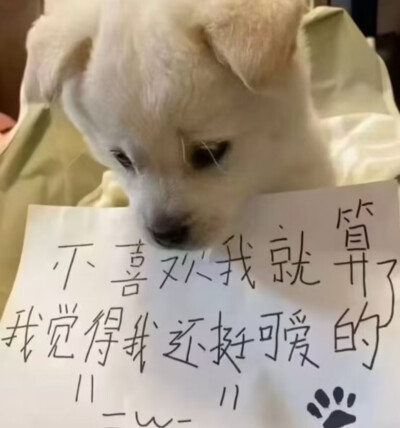 不喜欢我就算了
我觉得我还挺可爱的
= w =